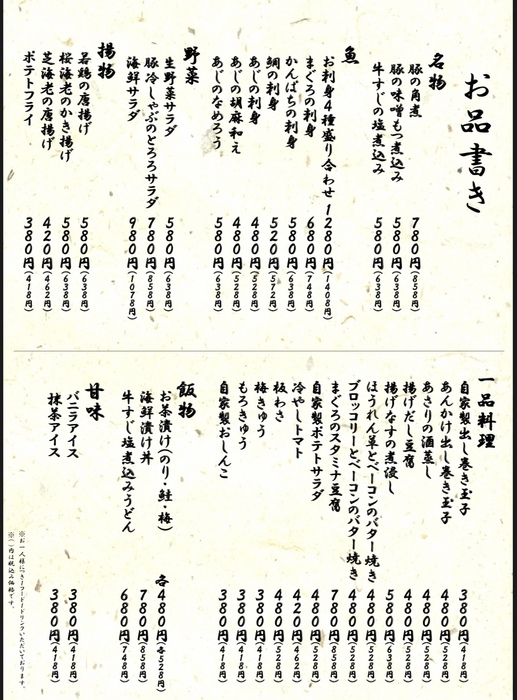 お品書き
名物
豚の角煮 780円(858円)
豚の味噌もつ煮込み 580円(638円)
牛すじの塩煮込み 580円(638円)
魚
お刺身4種盛り合わせ 1280円(1408円)
まぐろの刺身 680円(748円)
かんぱちの刺身 580円(638円)
鯛の刺身 520円(572円)
あじの刺身 480円(528円)
あじの胡麻和え 480円(528円)
あじのなめろう 580円(638円)
野菜
生野菜サラダ 580円(638円)
豚冷しゃぶのとろろサラダ 780円(858円)
海鮮サラダ 980円(1078円)
揚物
若鶏の唐揚げ 580円(638円)
桜海老のかき揚げ 580円(638円)
芝海老の唐揚げ 420円(462円)
ポテトフライ 380円(418円)
一品料理
自家製出し巻き玉子 380円(418円)
あんかけ出し巻き玉子 480円(528円)
あさりの酒蒸し 480円(528円)
揚げだし豆腐 480円(528円)
揚げなすの煮浸し 580円(638円)
ほうれん草とベーコンのバター焼き 480円(528円)
ブロッコリーとベーコンのバター焼き 480円(528円)
まぐろのスタミナ豆腐 780円(858円)
自家製ポテトサラダ 480円(528円)
冷やしトマト 420円(462円)
板わさ 480円(528円)
梅きゅう 380円(418円)
もろきゅう 380円(418円)
自家製おしんこ 380円(418円)
飯物
お茶漬け(のり・鮭・梅) 各480円(各528円)
海鮮漬け丼 780円(858円)
牛すじ塩煮込みうどん 680円(748円)
甘味
バニラアイス 380円(418円)
抹茶アイス 380円(418円)
※お一人様につき1フード1ドリンクいただいております。
※( )内は税込み価格です。